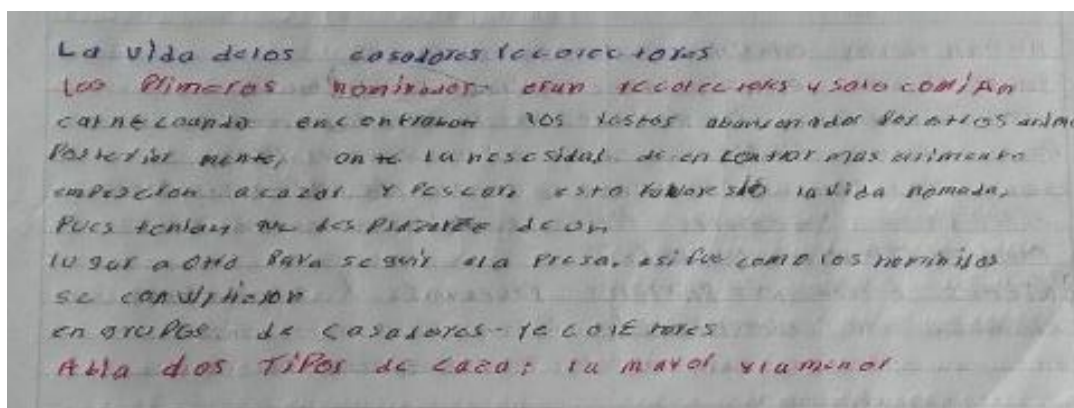 La vida delos casadores recolectores
los Plimeros hominidos eran recolectores y solo comían
carne cuando encontrabon los restos abandonados Por otros anima
Posterior mente, onte la nesesidad de encontrar mas alimento
empesaron a cazar y Pescar, esto faboresio la vida nomada,
Pues tenian que des Plazarse de un
lugar a otro Para seguir ala Presa. asi fue como los hominidos
se convirtieron
en grupos de casadores - recolectores
Abia dos TiPos de caza: la mayor y la menor